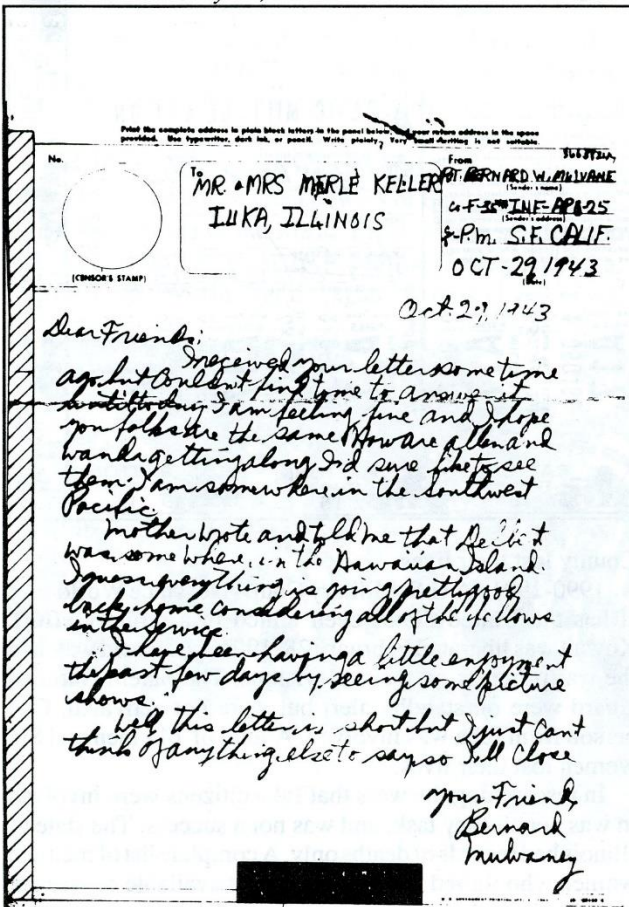 Print the complete address in plain block letters in the panel below, and your return address in the space
provided. Use typewriter, dark ink, or pencil. Write plainly. Very small writing is not suitable.
No.
(CENSOR'S STAMP)
To
MR. & MRS MERLE KELLER
IUKA, ILLINOIS
From
PVT. BERNARD W. MULVANE
(Sender's name)
Co-F INF-APO-25
(Sender's address)
P.M. S.F. CALIF.
OCT-29 1943
(Date)
Oct. 29, 1943
Dear Friends:
I received your letter some time
ago but couldn't find time to answer it
until today I am feeling fine and I hope
you folks are the same How are allen and
wanda getting along I'd sure like to see
them. I am somewhere in the Southwest
Pacific.
Mother wrote and told me that
was some where in the Hawaiian Island
I guess everything is going pretty good
back home considering all of the fellows
in the service.
I have been having a little enjoyment
the past few days by seeing some picture
shows.
Well this letter is short but I just Cant
think of anything else to say so I'll Close
your Friend,
Bernard
Mulvaney